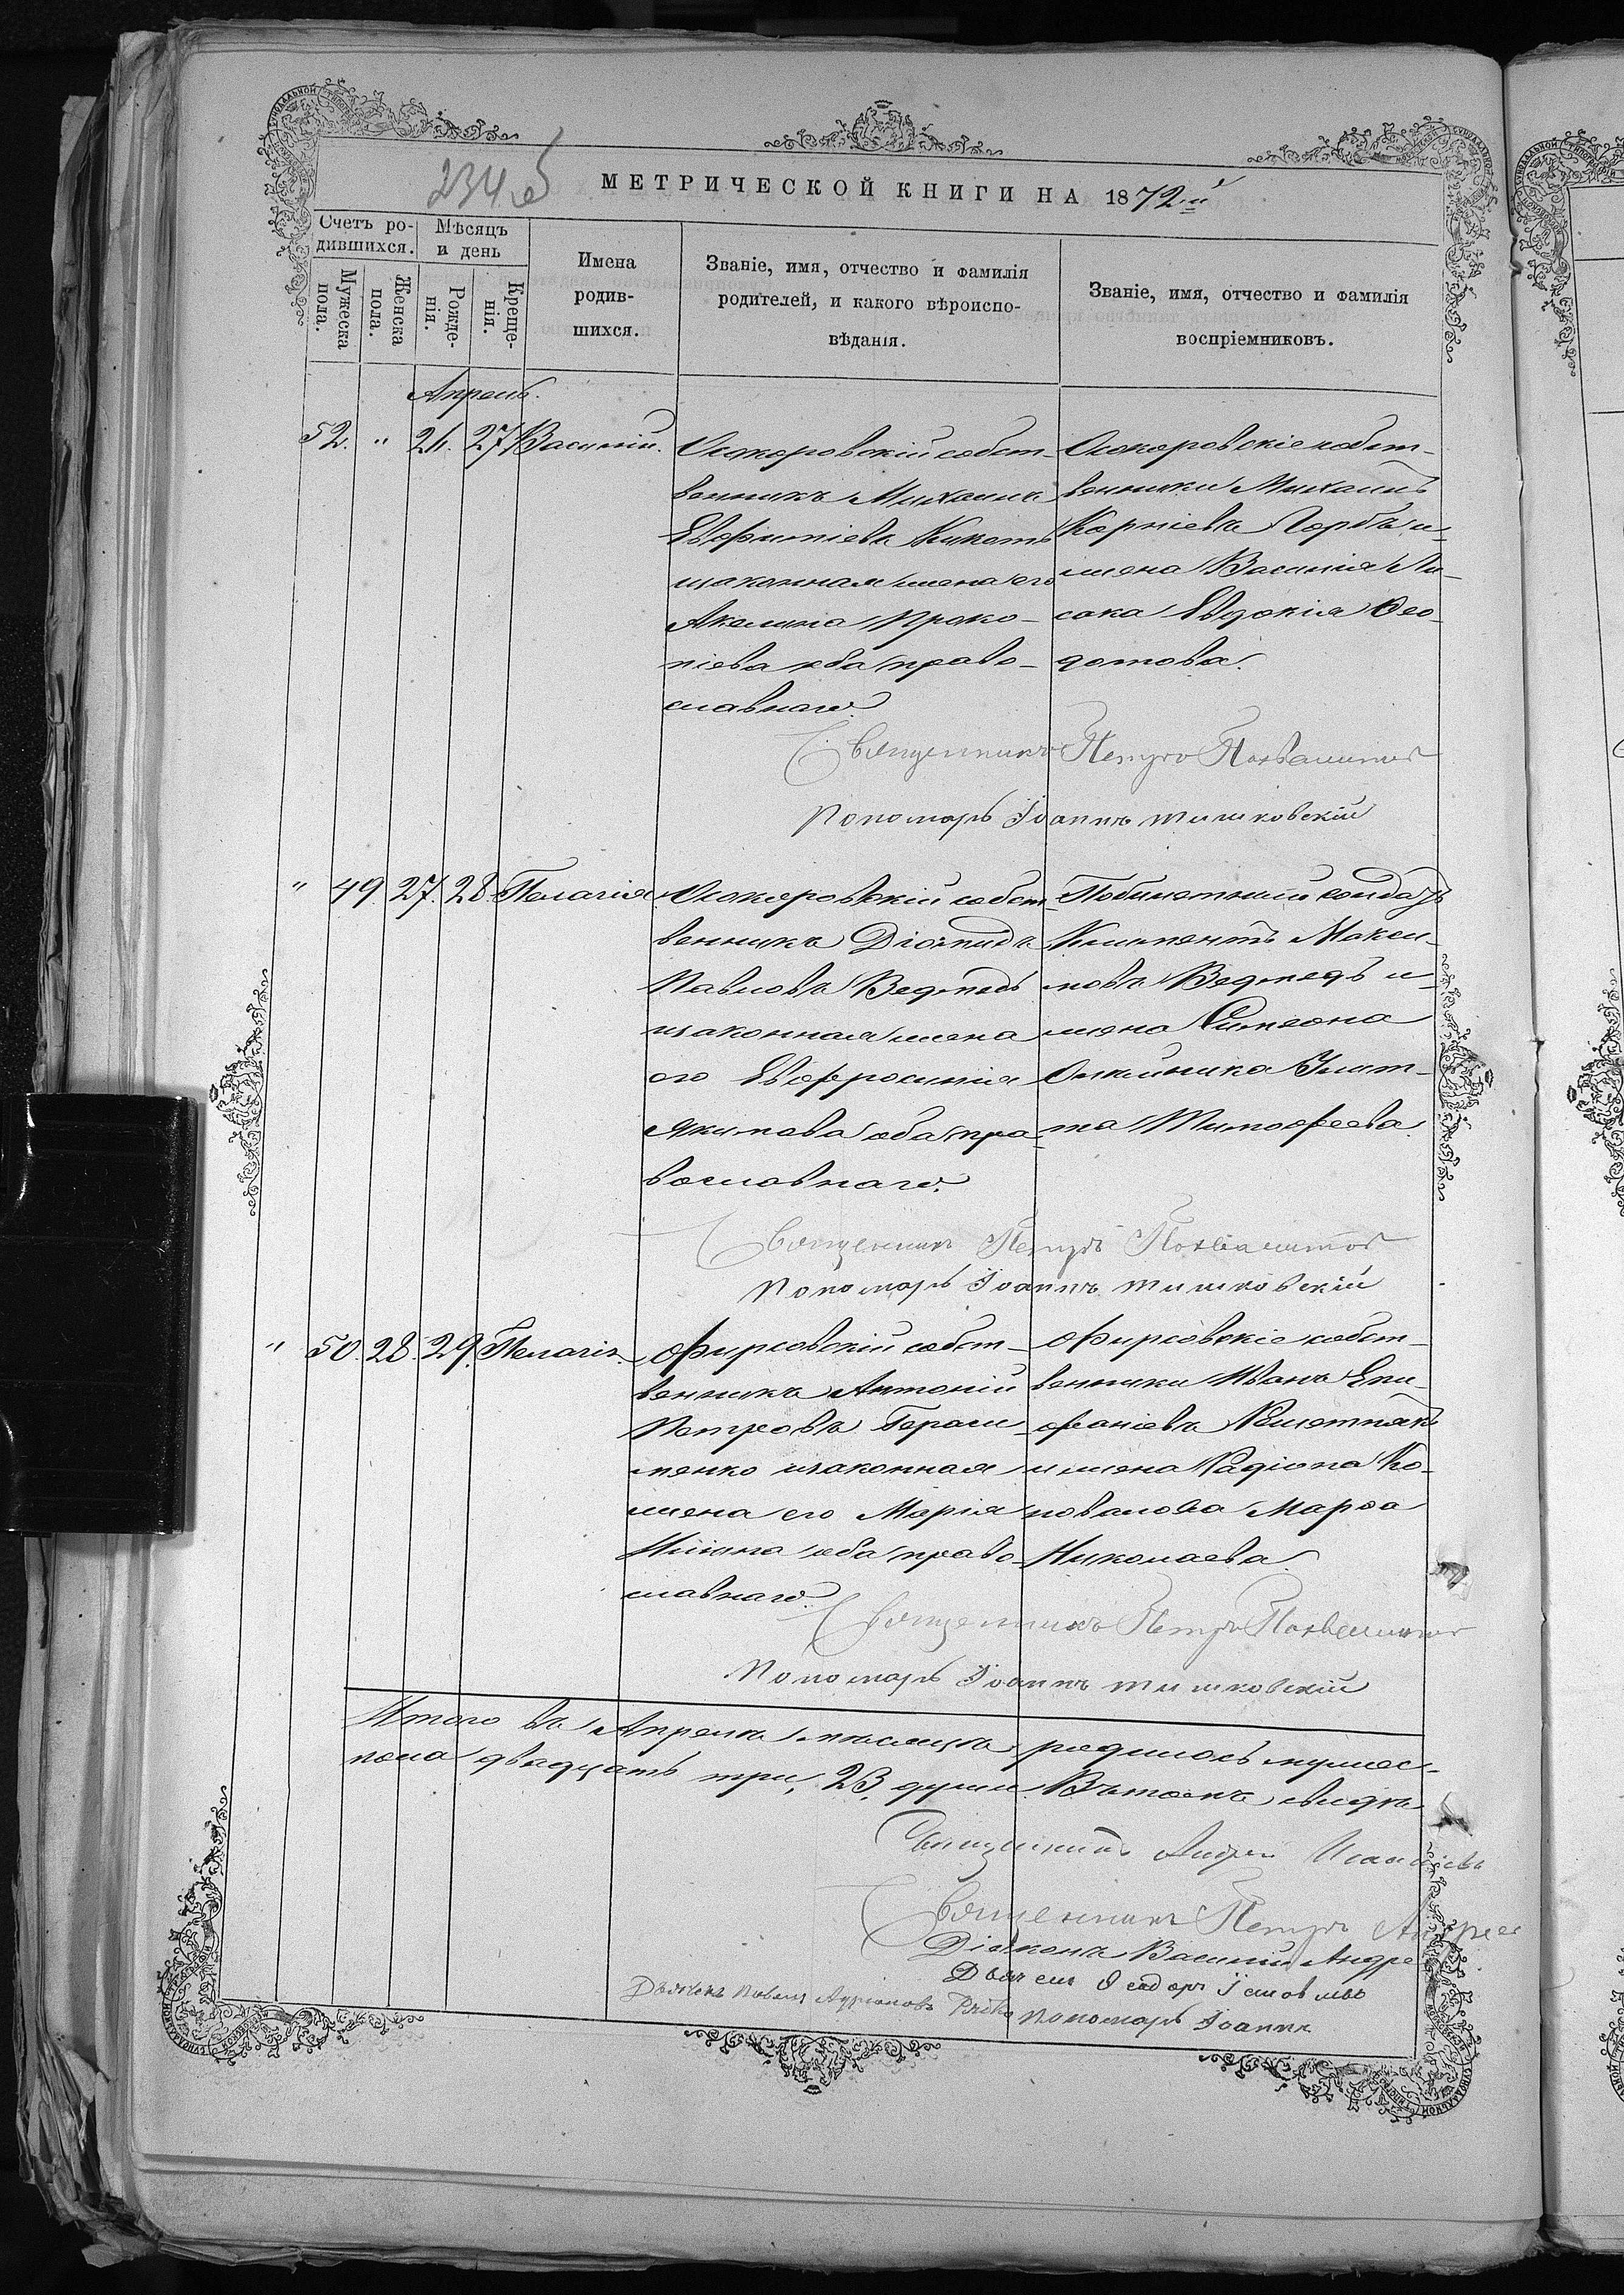 234 об
МЕТРИЧЕСКОЙ КНИГИ НА 1872й
Счетъ родившихся.
Мужеска пола.
Женска пола.
Мѣсяцъ и день
Рожденія.
Крещенія.
Имена родившихся.
Званіе, имя, отчество и фамилія
родителей, и какого вѣроисповѣданія.
Званіе, имя, отчество и фамилія
воспріемниковъ.
Апрель.
52. " 26. 27. Василій.
Осокоровскій собст-
венникъ Михаилъ
Евфиміевъ
и законная жена его
Акелина Проко-
піева оба право-
славнаго.
Осокоровскіе собст-
венники Михаилъ
Корніевъ Горбъ и
жена Василія Ли-
сака Евдокія Ѳео-
дотова.
Священникъ Петръ Похвалитовъ
Пономарь Іоаннъ Тишковскій
" 49. 27. 28. Пелагія.
Осокоровскій собст-
венникъ Діомидъ
Павловъ Ведмедь
и законная жена
его Евфросинія
Якимова оба пра-
вославнаго.
солдатъ
Климентъ Макси-
мовъ Ведмедь и
жена Симеона
Олейника Улит-
та Тимофеева.
Священникъ Петръ Похвалитовъ
Пономарь Іоаннъ Тишковскій
" 50. 28. 29. Пелагія.
Фирсовскій собст-
венникъ Антоній
Петровъ Гераси-
менко и законная
жена его Марія
Ильина оба право-
славнаго.
Фирсовскіе собст-
венники Иванъ Епи-
фаніевъ Решетнякъ
и жена Радіона Ко-
новалова Марѳа
Николаева.
Священникъ Петръ Похвалитовъ
Пономарь Іоаннъ Тишковскій
Итого въ Апрелѣ мѣсяцѣ родилось мужес.
пола двадцать три, 23, души. Въ томъ свидѣ
Священникъ Андрей
Священникъ Петръ Андрее
Діаконъ Василій Андре
Пономарь Іоаннъ